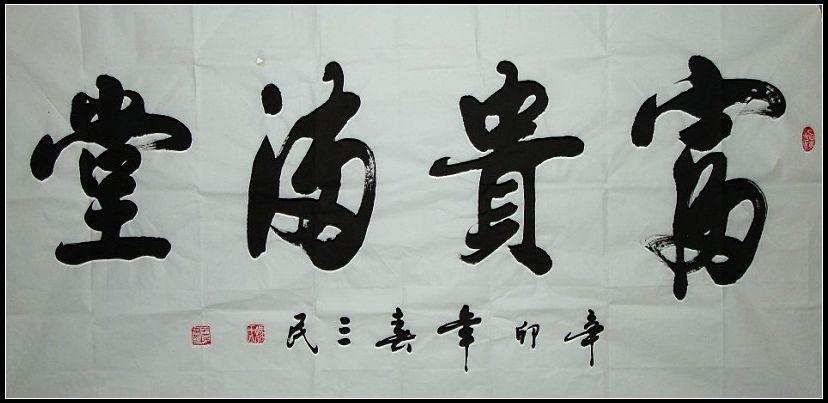 富貴滿堂
辛卯年春三民